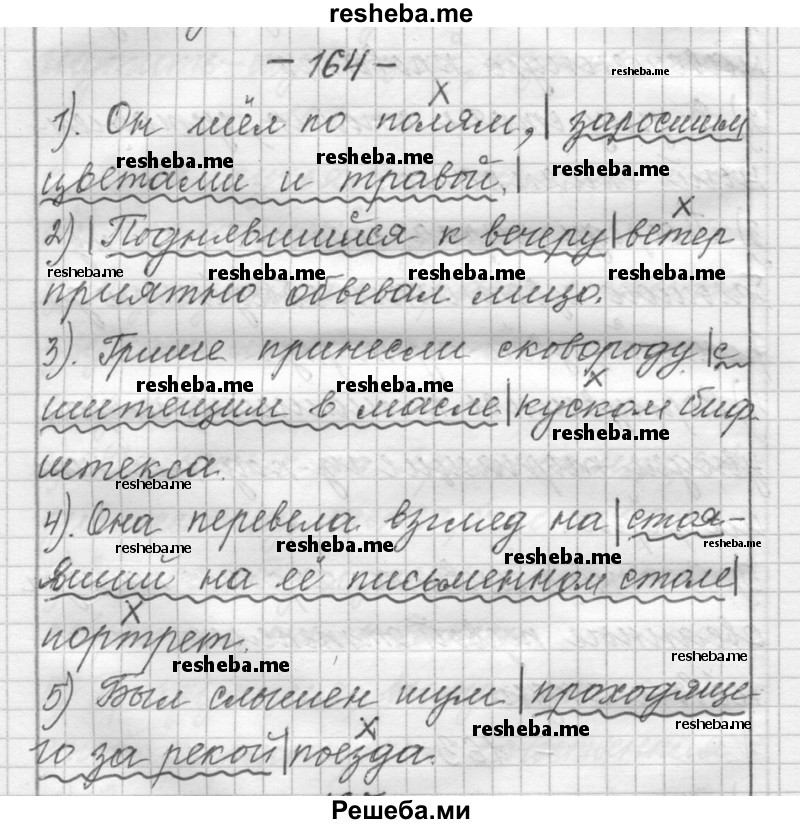 resheba.me
- 164 -
resheba.me
1). Он шёл по полям, | заросшим
resheba.me resheba.me resheba.me
цветами и травой. |
2) | Поднявшийся к вечеру | ветер
resheba.me resheba.me resheba.me resheba.me
приятно обвевал лицо.
3). Грише принесли сковороду | с
resheba.me resheba.me
шипящим в масле | куском биф
resheba.me
штекса.
resheba.me
4). Она перевела взгляд на | стоя-
resheba.me resheba.me resheba.me resheba.me
вший на её письменном столе |
портрет.
resheba.me resheba.me
5) Был слышен шум | проходяще-
resheba.me resheba.me
го за рекой | поезда.
Решеба.ми